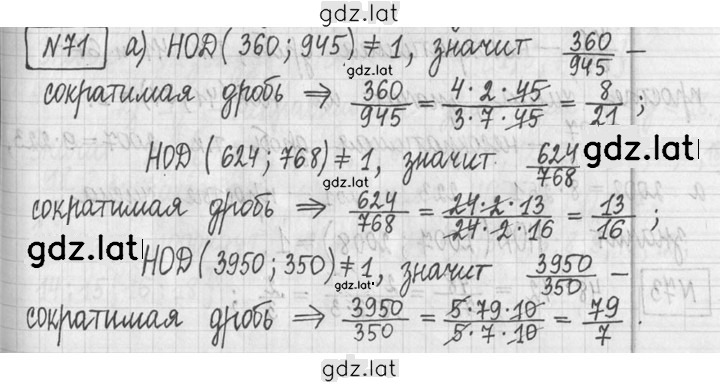 gdz.lat
N71 а) НОД(360; 945) ≠ 1, значит 360/945 –
gdz.lat
сократимая дробь ⇒ 360/945 = 4·2·45/3·7·45 = 8/21;
НОД(624; 768) ≠ 1, значит 624/768
gdz.lat
gdz.lat
сократимая дробь ⇒ 624/768 = 24·2·13/24·2·16 = 13/16;
gdz.lat
НОД(3950; 350) ≠ 1, значит 3950/350 –
gdz.lat
сократимая дробь ⇒ 3950/350 = 5·79·10/5·7·10 = 79/7.
gdz.lat